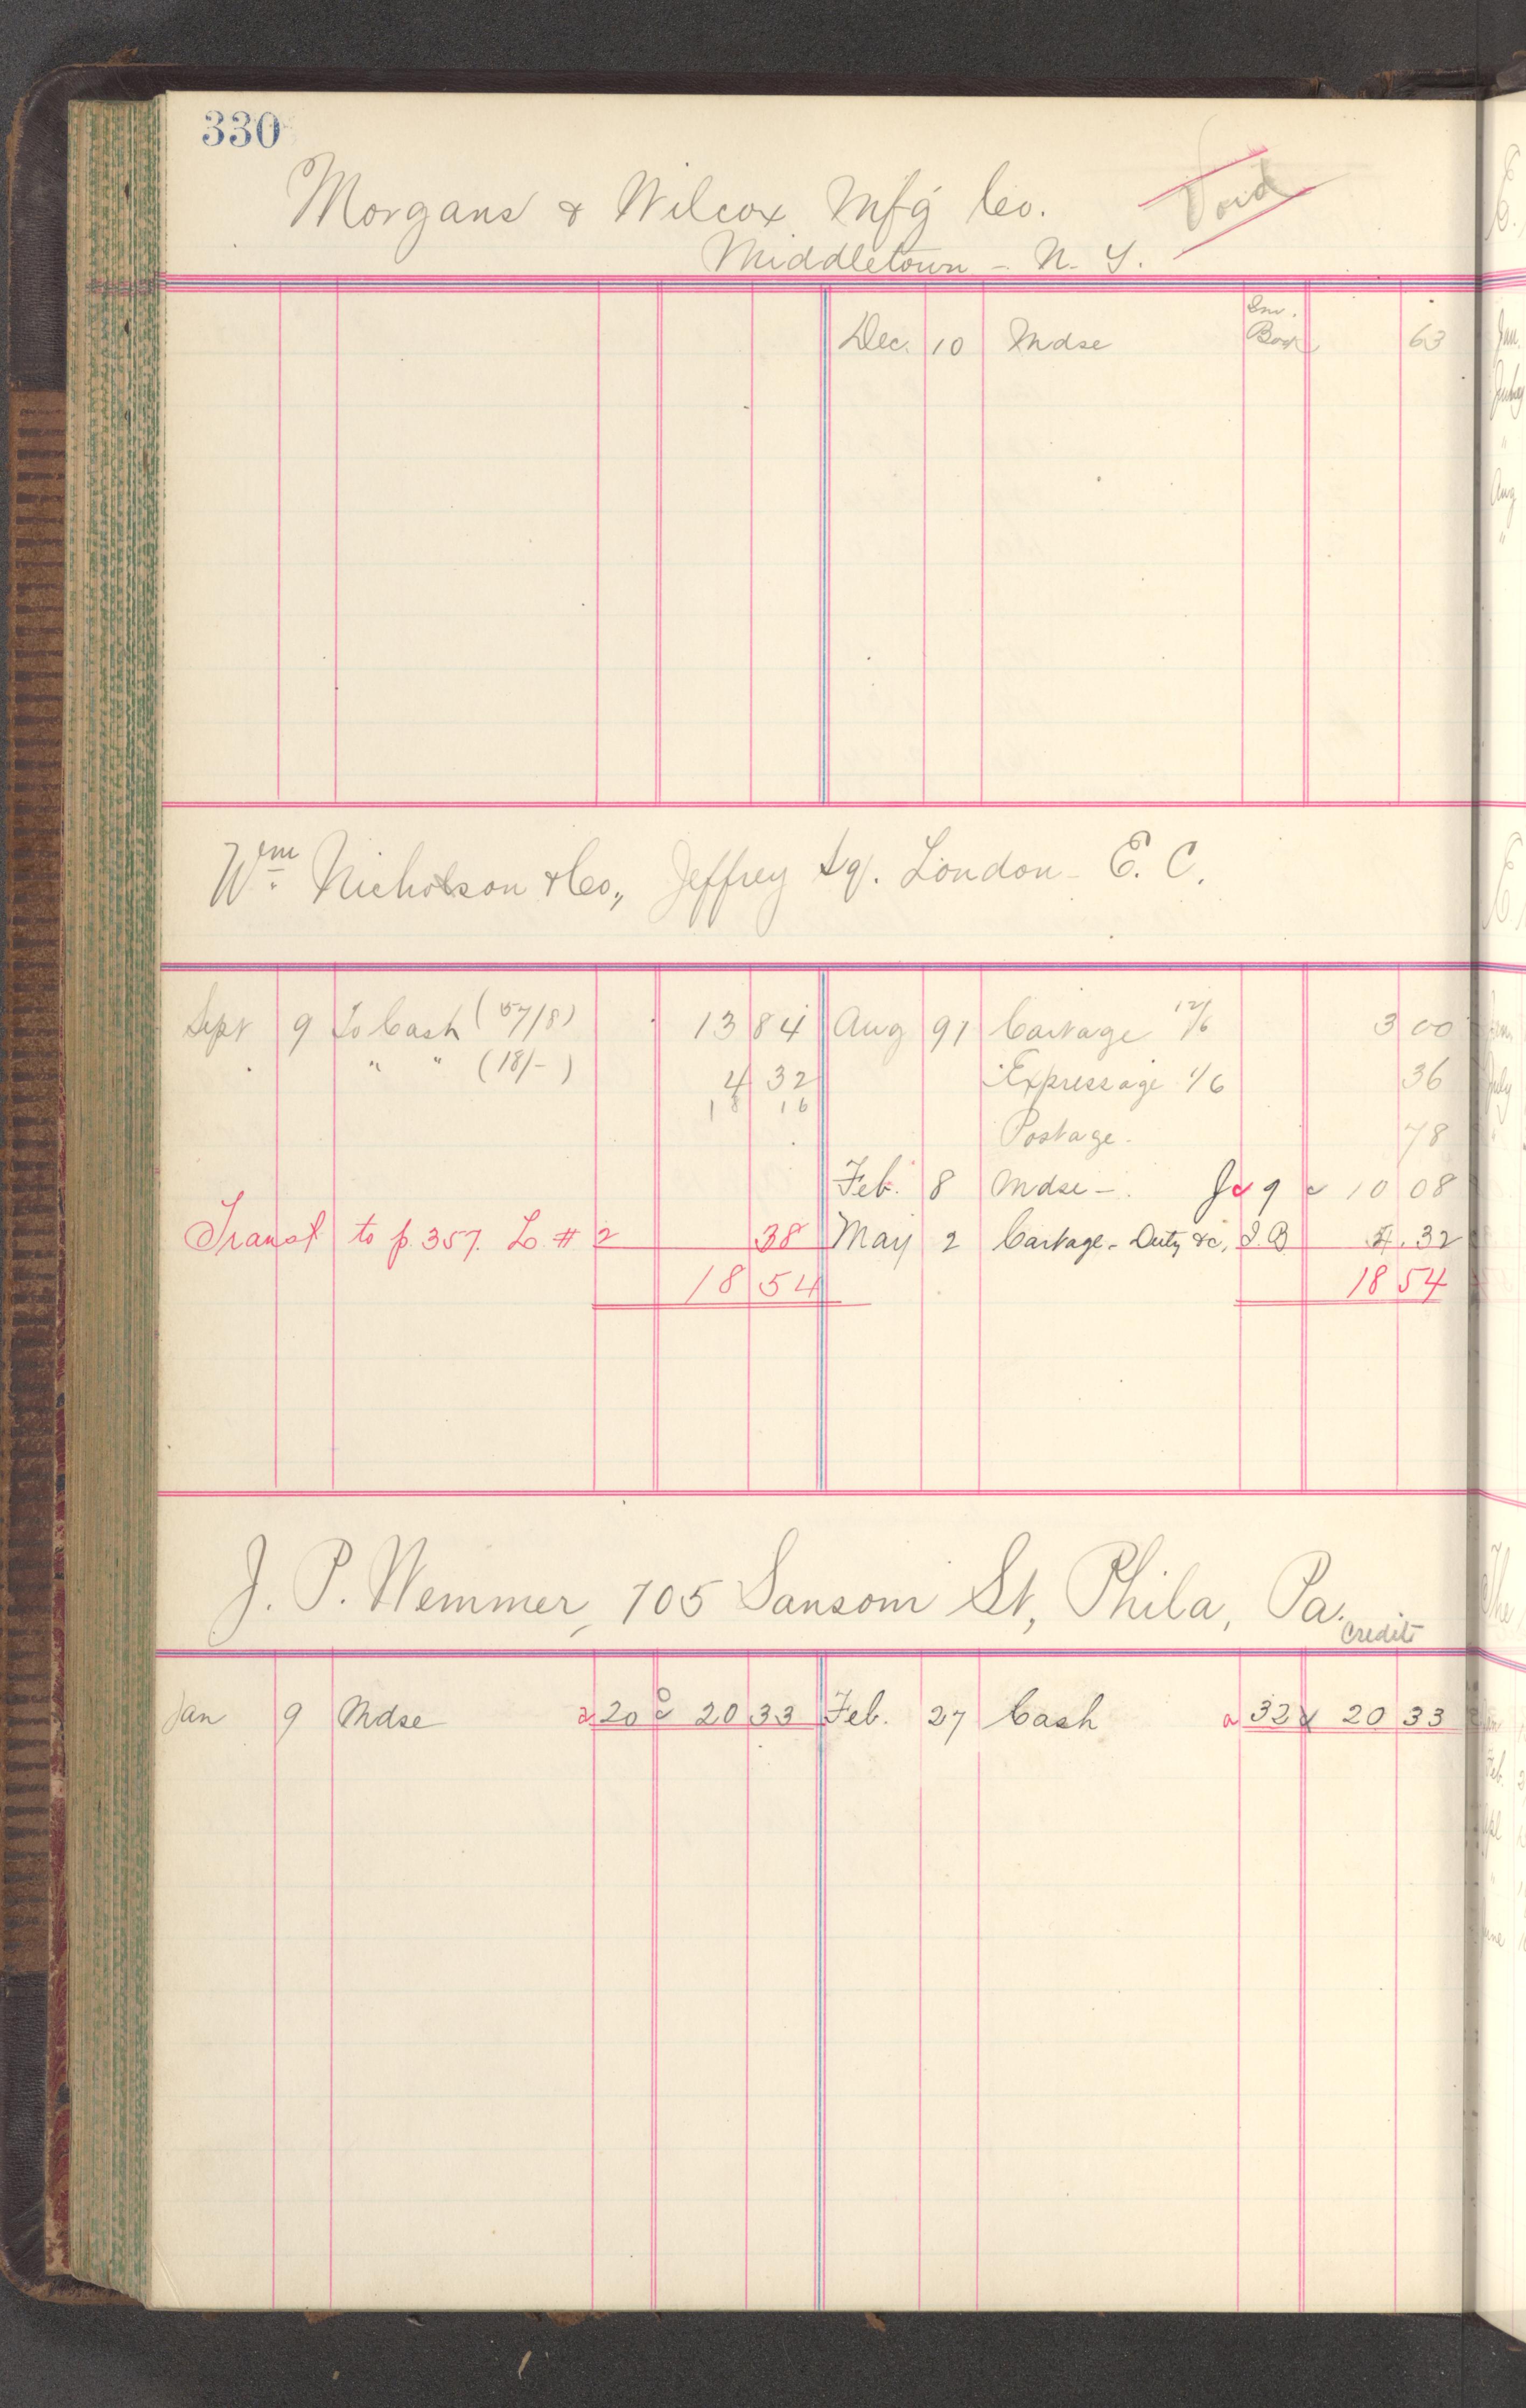 330
Morgans & Wilcox Mfg Co. Void
Middletown - N. Y.
Dec. 10 Mdse Inv. Book 63
Wm. Nicholson & Co., Jeffrey Sq. London - E. C.
Sept 9 To Cash (57/8) 13 84 Aug 91 Cartage 12/6 3 00
" " (18/-) 4 32 Expressage 1/6 36
18 16
Postage. 78
Feb. 8 Mdse -. J 9 10 08
Transf to p. 357. L # 2 38 May 2 Cartage - Duty &c, I. B 4.32
18 54 18 54
J. P. Wemmer, 705 Sansom St, Phila, Pa. Credit
Jan 9 Mdse a 20 20 33 Feb. 27 Cash a 32 20 33